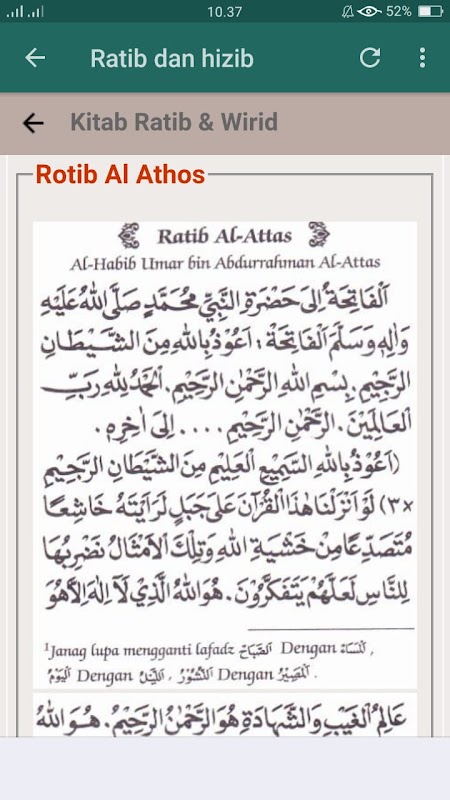 10.37
52%
Ratib dan hizib
Kitab Ratib & Wirid
Rotib Al Athos
Ratib Al-Attas
Al-Habib Umar bin Abdurrahman Al-Attas
اَلْفَاتِحَةُ اِلَى حَضْرَةِ النَّبِيِّ مُحَمَّدٍ صَلَّى اللهُ عَلَيْهِ
وَاٰلِهِ وَسَلَّمَ اَلْفَاتِحَةْ : اَعُوْذُ بِاللهِ مِنَ الشَّيْطَانِ
الرَّجِيْمِ. بِسْمِ اللهِ الرَّحْمٰنِ الرَّحِيْمِ. اَلْحَمْدُ لِلّٰهِ رَبِّ
الْعَالَمِيْنَ. الرَّحْمٰنِ الرَّحِيْمِ .... اِلَى اٰخِرِهِ .
(اَعُوْذُ بِاللهِ السَّمِيْعِ الْعَلِيْمِ مِنَ الشَّيْطَانِ الرَّجِيْمِ
×٣) لَوْ اَنْزَلْنَا هٰذَا الْقُرْآنَ عَلَى جَبَلٍ لَرَاَيْتَهُ خَاشِعًا
مُتَصَدِّعًا مِنْ خَشْيَةِ اللهِ وَتِلْكَ الْاَمْثَالُ نَضْرِبُهَا
لِلنَّاسِ لَعَلَّهُمْ يَتَفَكَّرُوْنَ. هُوَ اللهُ الَّذِيْ لَا اِلٰهَ اِلَّا هُوَ
¹Janag lupa mengganti lafadz اَلصَّبَاحُ Dengan اَلْمَسَاءُ ,
اَلْيَوْمُ Dengan اَللَّيْلُ , اَلنُّشُوْرُ Dengan اَلْمَصِيْرُ .
عَالِمُ الْغَيْبِ وَالشَّهَادَةِ هُوَ الرَّحْمٰنُ الرَّحِيْمُ. هُوَ اللهُ